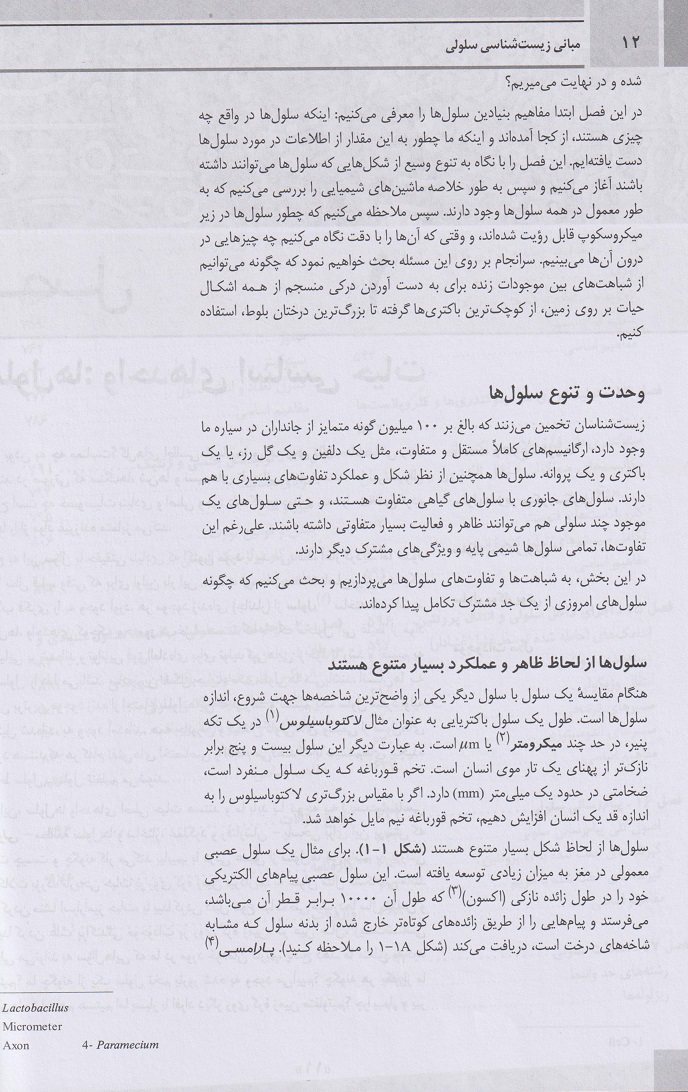 ۱۲
مبانی زیست‌شناسی سلولی
شده و در نهایت می‌میریم؟
در این فصل ابتدا مفاهیم بنیادین سلول‌ها را معرفی می‌کنیم: اینکه سلول‌ها در واقع چه
چیزی هستند، از کجا آمده‌اند و اینکه ما چطور به این مقدار از اطلاعات در مورد سلول‌ها
دست یافته‌ایم. این فصل را با نگاه به تنوع وسیع از شکل‌هایی که سلول‌ها می‌توانند داشته
باشند آغاز می‌کنیم و سپس به طور خلاصه ماشین‌های شیمیایی را بررسی می‌کنیم که به
طور معمول در همه سلول‌ها وجود دارند. سپس ملاحظه می‌کنیم که چطور سلول‌ها در زیر
میکروسکوپ قابل رؤیت شده‌اند، و وقتی که آن‌ها را با دقت نگاه می‌کنیم چه چیزهایی در
درون آن‌ها می‌بینیم. سرانجام بر روی این مسئله بحث خواهیم نمود که چگونه می‌توانیم
از شباهت‌های بین موجودات زنده برای به دست آوردن درکی منسجم از همه اشکال
حیات بر روی زمین، از کوچک‌ترین باکتری‌ها گرفته تا بزرگ‌ترین درختان بلوط، استفاده
کنیم.
وحدت و تنوع سلول‌ها
زیست‌شناسان تخمین می‌زنند که بالغ بر ۱۰۰ میلیون گونه متمایز از جانداران در سیاره ما
وجود دارد، ارگانیسم‌های کاملاً مستقل و متفاوت، مثل یک دلفین و یک گل رز، یا یک
باکتری و یک پروانه. سلول‌ها همچنین از نظر شکل و عملکرد تفاوت‌های بسیاری با هم
دارند. سلول‌های جانوری با سلول‌های گیاهی متفاوت هستند، و حتی سلول‌های یک
موجود چند سلولی هم می‌توانند ظاهر و فعالیت بسیار متفاوتی داشته باشند. علی‌رغم این
تفاوت‌ها، تمامی سلول‌ها شیمی پایه و ویژگی‌های مشترک دیگر دارند.
در این بخش، به شباهت‌ها و تفاوت‌های سلول‌ها می‌پردازیم و بحث می‌کنیم که چگونه
سلول‌های امروزی از یک جد مشترک تکامل پیدا کرده‌اند.
سلول‌ها از لحاظ ظاهر و عملکرد بسیار متنوع هستند
هنگام مقایسهٔ یک سلول با سلول دیگر یکی از واضح‌ترین شاخصه‌ها جهت شروع، اندازه
سلول‌ها است. طول یک سلول باکتریایی به عنوان مثال لاکتوباسیلوس(۱) در یک تکه
پنیر، در حد چند میکرومتر(۲) یا μm است. به عبارت دیگر این سلول بیست و پنج برابر
نازک‌تر از پهنای یک تار موی انسان است. تخم قورباغه که یک سلول منفرد است،
ضخامتی در حدود یک میلی‌متر (mm) دارد. اگر با مقیاس بزرگ‌تری لاکتوباسیلوس را به
اندازه قد یک انسان افزایش دهیم، تخم قورباغه نیم مایل خواهد شد.
سلول‌ها از لحاظ شکل بسیار متنوع هستند (شکل ۱-۱). برای مثال یک سلول عصبی
معمولی در مغز به میزان زیادی توسعه یافته است. این سلول عصبی پیام‌های الکتریکی
خود را در طول زائده نازکی (اکسون)(۳) که طول آن ۱۰۰۰۰ برابر قطر آن می‌باشد،
می‌فرستد و پیام‌هایی را از طریق زائده‌های کوتاه‌تر خارج شده از بدنه سلول که مشابه
شاخه‌های درخت است، دریافت می‌کند (شکل ۱-۱A را ملاحظه کنید). پارامسی(۴)
Lactobacillus
Micrometer
Axon 4- Paramecium